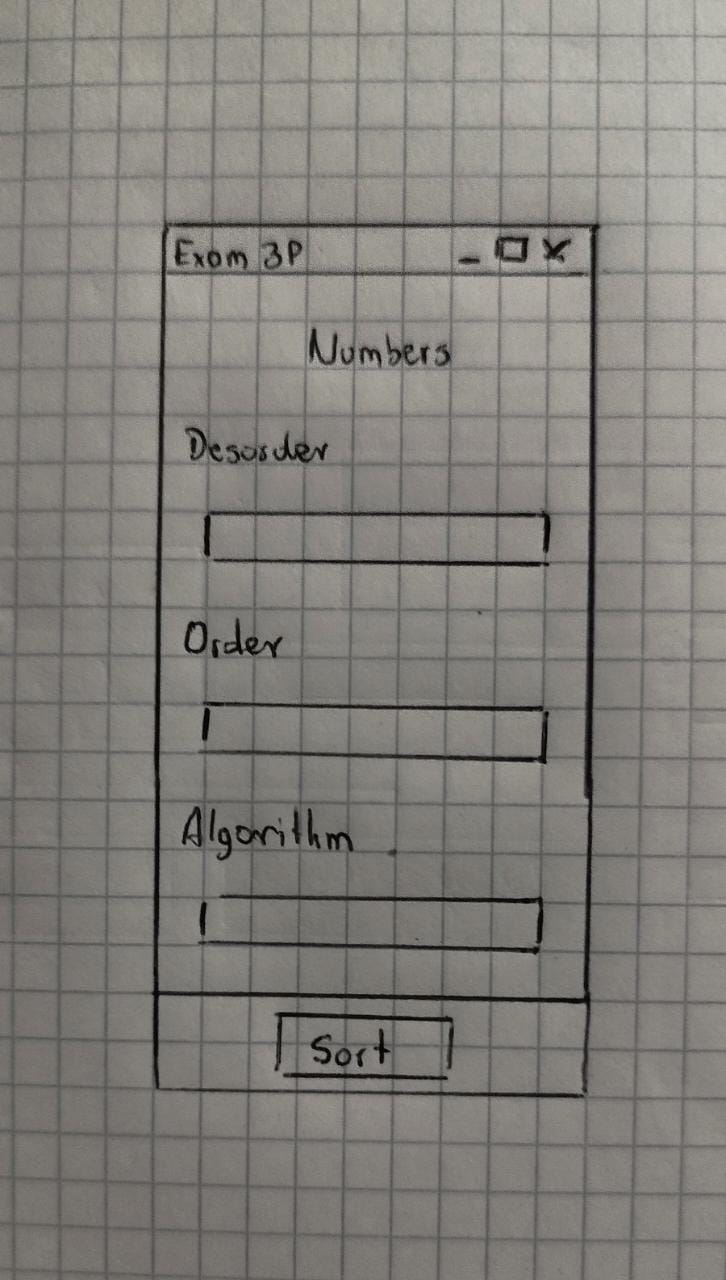 Exam 3P
Numbers
Desorder
Order
Algorithm
Sort